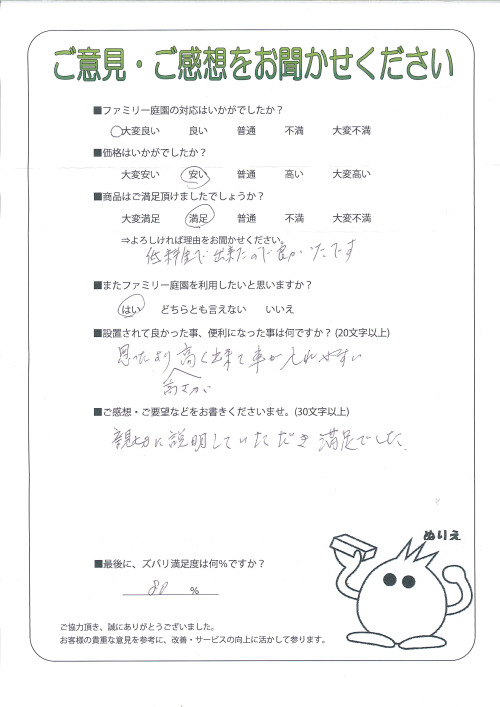 ご意見・ご感想をお聞かせください
■ファミリー庭園の対応はいかがでしたか?
大変良い 良い 普通 不満 大変不満
■価格はいかがでしたか?
大変安い 安い 普通 高い 大変高い
■商品はご満足頂けましたでしょうか?
大変満足 満足 普通 不満 大変不満
⇒よろしければ理由をお聞かせください。
低料金で出来たので良かったです
■またファミリー庭園を利用したいと思いますか?
はい どちらとも言えない いいえ
■設置されて良かった事、便利になった事は何ですか?(20文字以上)
思ったより高く出来て車が入れやすい
高さが
■ご感想・ご要望などをお書きくださいませ。(30文字以上)
親切に説明していただき満足でした。
ぬりえ
■最後に、ズバリ満足度は何%ですか?
80 %
ご協力頂き、誠にありがとうございました。
お客様の貴重な意見を参考に、改善・サービスの向上に活かして参ります。